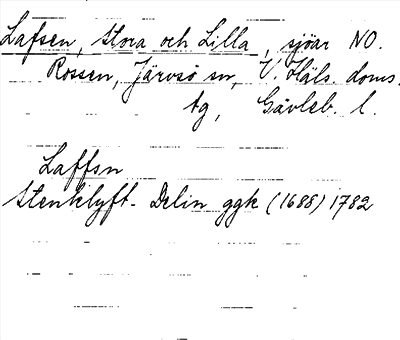 Lafsen, Stora och Lilla, sjöar NO.
Rossen, Järvsö sn, V. Häls. doms.
tg, Gävleb. l.
Laffsn
Stenklyft- Delin ggk (1688) 1782